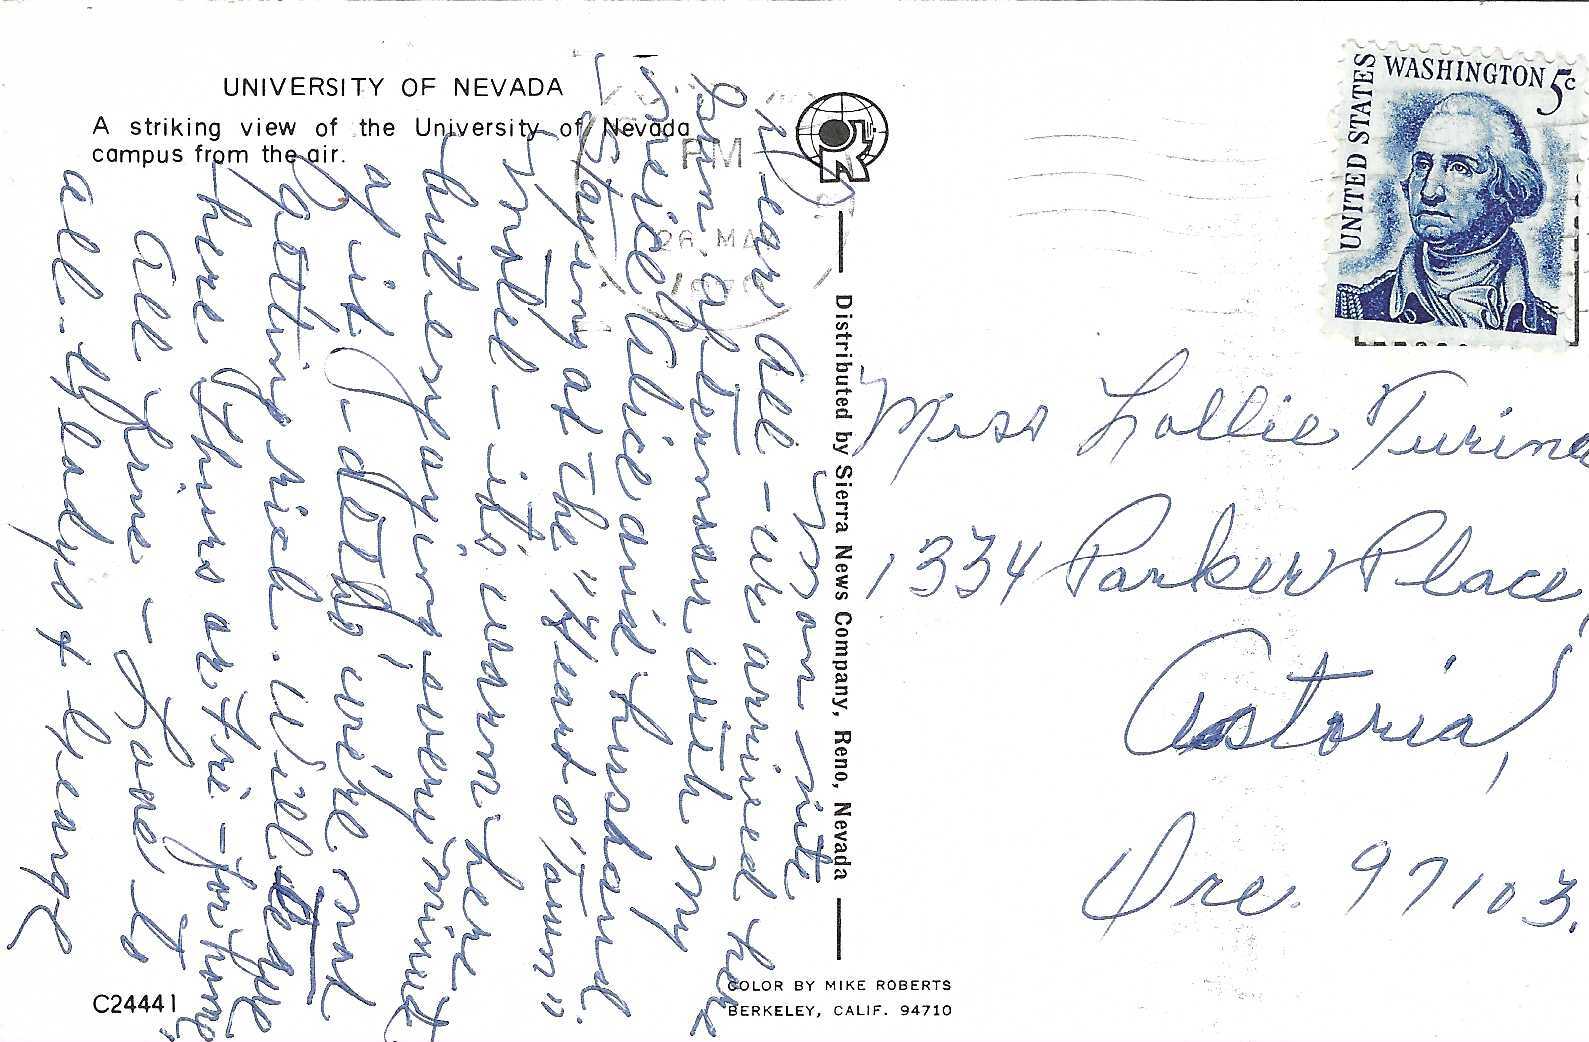 UNIVERSITY OF NEVADA
A striking view of the University of Nevada
campus from the air.
PM
26 MA
WASHINGTON 5c
UNITED STATES
Mon nite
Dear All - we arrived here
Sun. afternoon with my
niece Alice and husband.
Staying at the "Heart o' Town"
Motel - its warm here
but enjoying every minute
of it - dotto we're not
getting rich. Will leave
here Thurs or Fri - for home,
All fine - Love to
all - Gladys & George
Distributed by Sierra News Company, Reno, Nevada
Miss Lollie Turina
1334 Parker Place,
Astoria,
Ore. 97103.
C24441
COLOR BY MIKE ROBERTS
BERKELEY, CALIF. 94710